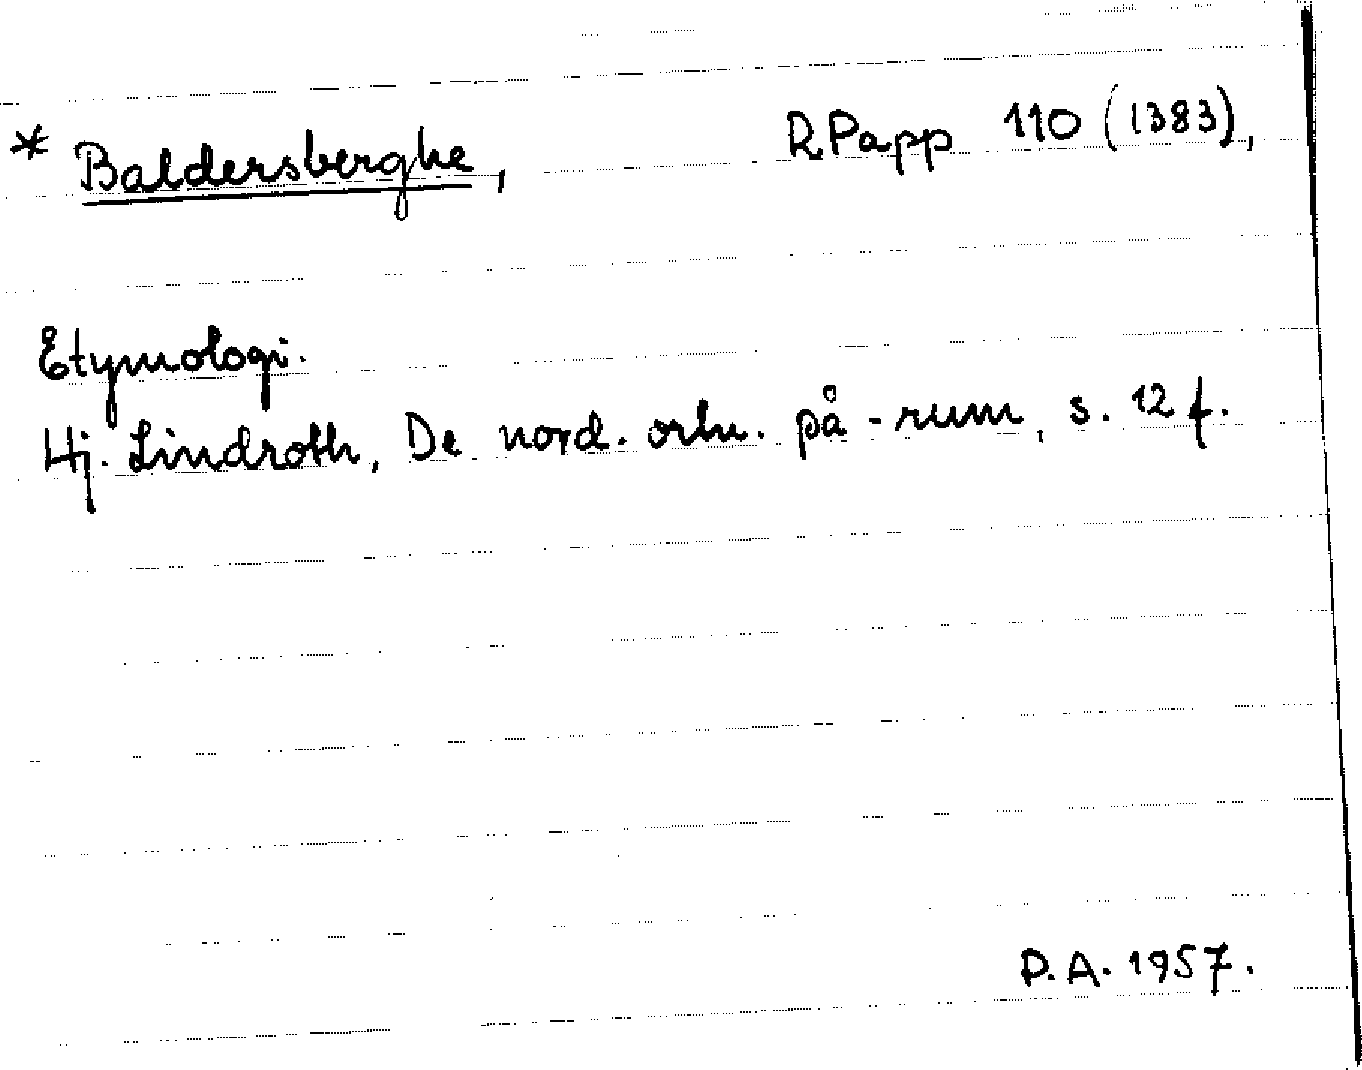 * Baldersberghe, R Papp 110 (1383),
Etymologi.
Hj. Lindroth, De nord. ortn. på -rum, s. 12 f.
P.A. 1957.